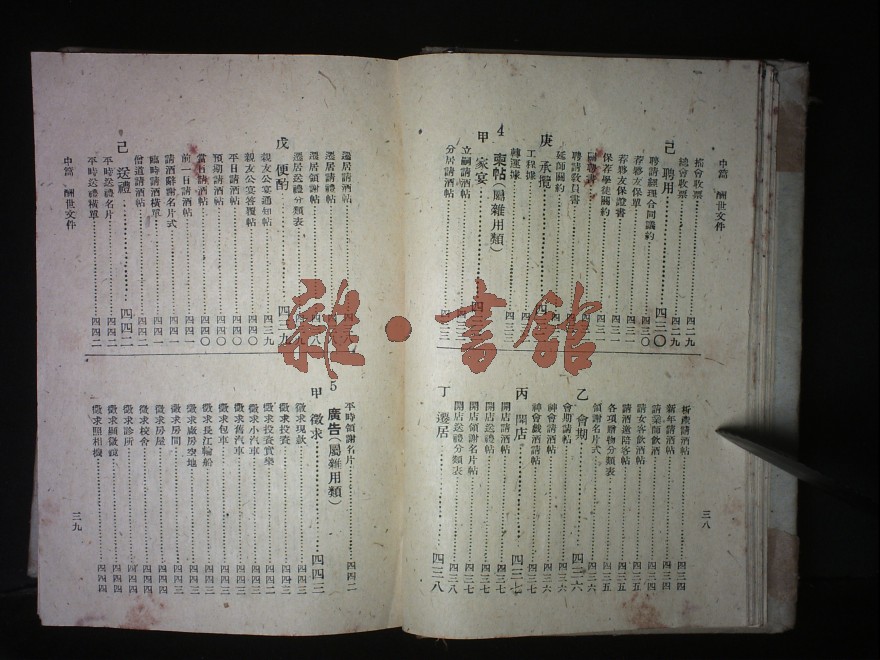 中篇 酬世文件
搖會收票……四二九
總會收票……四二九
己 聘用……四三〇
聘請經理合同議約……四三〇
荐夥友保單……四三一
荐夥友保證書……四三一
保荐學徒關約……四三一
聘請教員書
延師關約
庚 承攬
工程據
轉運據
4 柬帖(屬雜用類)
甲 家宴
立嗣請酒帖
分居請酒帖
析產請酒帖……四三四
新年請酒帖……四三四
請業師飲酒……四三四
請女客飲酒帖……四三五
請酒邀陪客帖……四三五
各項贈物分類表……四三五
領謝名片式……四三六
乙 會期……四三六
會期請帖……四三六
神會請酒帖……四三六
神會戲酒請帖……四三七
丙 開店……四三七
開店請酒帖……四三七
開店送禮帖……四三七
開店領謝名片帖……四三七
開店送禮分類表……四三八
丁 遷居……四三八
三八
遷居請酒帖
遷居送禮帖
遷居領謝帖
遷居送禮分類表
戊 便酌……四三九
親友公宴通知帖……四三九
親友公宴答覆帖……四四〇
平日請酒帖……四四〇
預期請酒帖……四四〇
當日請酒帖……四四〇
前一日請酒帖……四四一
請酒辭謝名片式……四四一
臨時請酒橫單……四四一
僧道請酒帖……四四二
己 送禮……四四二
平時送禮名片……四四二
平時送禮橫單……四四二
中篇 酬世文件
平時領謝名片……四四二
5 廣告(屬雜用類)
甲 徵求……四四三
徵求現款……四四三
徵求投資……四四三
徵求投資實業……四四二
徵求小汽車……四四三
徵求舊汽車……四四三
徵求包車……四四三
徵求長江輪船……四四三
徵求廠房空地……四四三
徵求房間……四四三
徵求房屋……四四四
徵求校舍……四四四
徵求診所……四四四
徵求顯微鏡……四四四
徵求照相機……四四四
三九
雜·書館